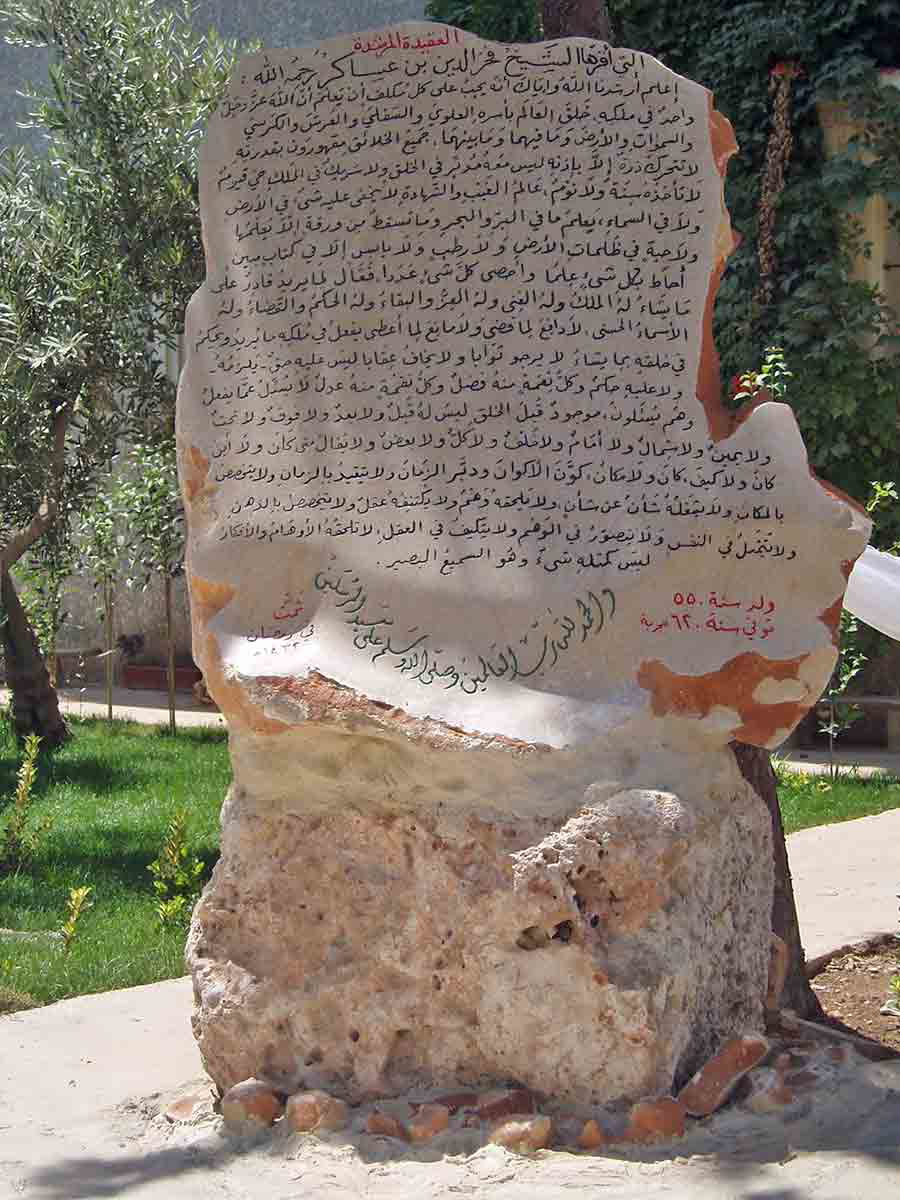 العقيدة المرشدة
التي أقرها الشيخ فخر الدين بن عساكر رحمه الله :
إعلم أرشدنا الله وإياك أنه يجب على كل مكلف أن يعلم أن الله عز وجل
واحد في ملكه، خلق العالم بأسره العلوي والسفلي والعرش والكرسي
والسموات والأرض وما فيهما وما بينهما. جميع الخلائق مقهورون بقدرته
لا تتحرك ذرة إلا بإذنه ليس معه مدبر في الخلق ولا شريك في الملك حي قيوم
لا تأخذه سنة ولا نوم، عالم الغيب والشهادة لا يخفى عليه شيء في الأرض
ولا في السماء، يعلم ما في البر والبحر وما تسقط من ورقة إلا يعلمها
ولا حبة في ظلمات الأرض ولا رطب ولا يابس إلا في كتاب مبين
أحاط بكل شيء علما وأحصى كل شيء عددا، فعال لما يريد قادر على
ما يشاء له الملك وله الغنى وله العز والبقاء وله الحكم والقضاء وله
الأسماء الحسنى، لا دافع لما قضى ولا مانع لما أعطى يفعل في ملكه ما يريد ويحكم
في خلقه بما يشاء لا يرجو ثوابا ولا يخاف عقابا ليس عليه حق يلزمه
ولا عليه حكم وكل نعمة منه فضل وكل نقمة منه عدل لا يسئل عما يفعل
وهم يسئلون، موجود قبل الخلق ليس له قبل ولا بعد ولا فوق ولا تحت
ولا يمين ولا شمال ولا أمام ولا خلف ولا كل ولا بعض ولا يقال متى كان ولا أين
كان ولا كيف، كان ولا مكان، كون الأكوان ودبر الزمان ولا يتقيد بالزمان ولا يتخصص
بالمكان ولا يشغله شأن عن شأن ولا يلحقه وهم ولا يكتنفه عقل ولا يتخصص بالذهن
ولا يتمثل في النفس ولا يتصور في الوهم ولا يتكيف في العقل لا تلحقه الأوهام والأفكار
ليس كمثله شيء وهو السميع البصير .
والحمد لله رب العالمين وصلى الله وسلم على سيد المرسلين
ولد سنة ٥٥٠
توفي سنة ٦٢٠ هجرية
تمت
في رمضان